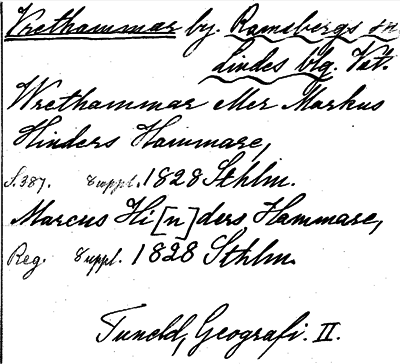 Vrethammar by. Ramsbergs sn
Lindes blg. Vstm.
Wrethammar eller Markus
Hinders Hammare,
S. 387. Suppl. 1828 Sthlm.
Marcus Hi[n]ders Hammare,
Reg. Suppl. 1828 Sthlm.
Tuneld, Geografi. II.